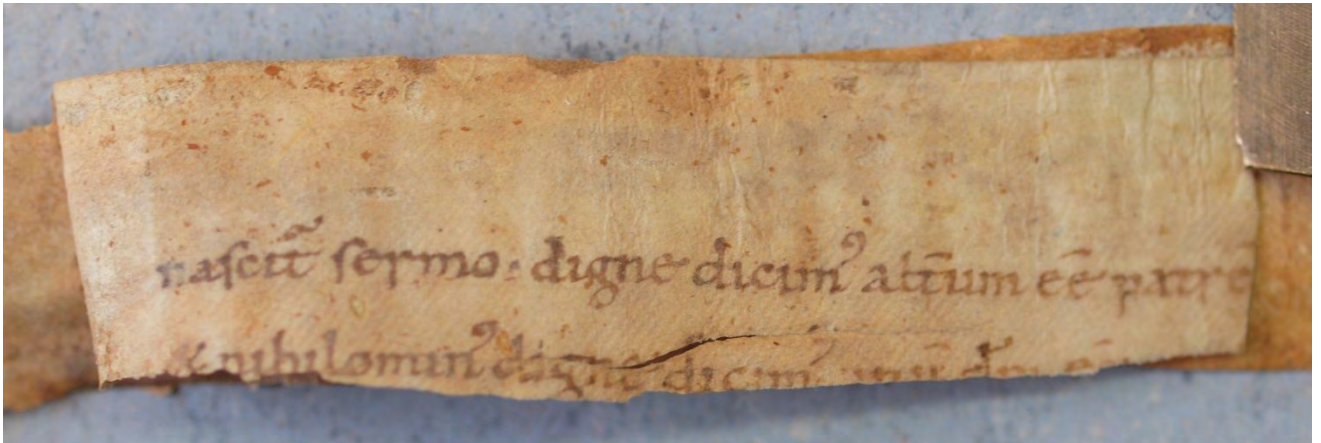 nascit᷑ sermo. digne dicim⁹ alt̄um eē patrē
& nihilomin⁹ digne dicim⁹ unū